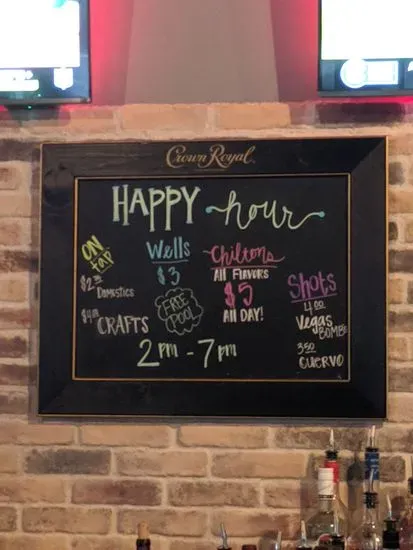 Crown Royal
HAPPY hour
ON TAP
$2.75 DOMESTICS
$4.00 CRAFTS
Wells
$3
FREE POOL!
Chiltons
All Flavors
$5
All DAY!
Shots
4.00
Vegas BOMBS
3.50
CUERVO
2PM - 7PM